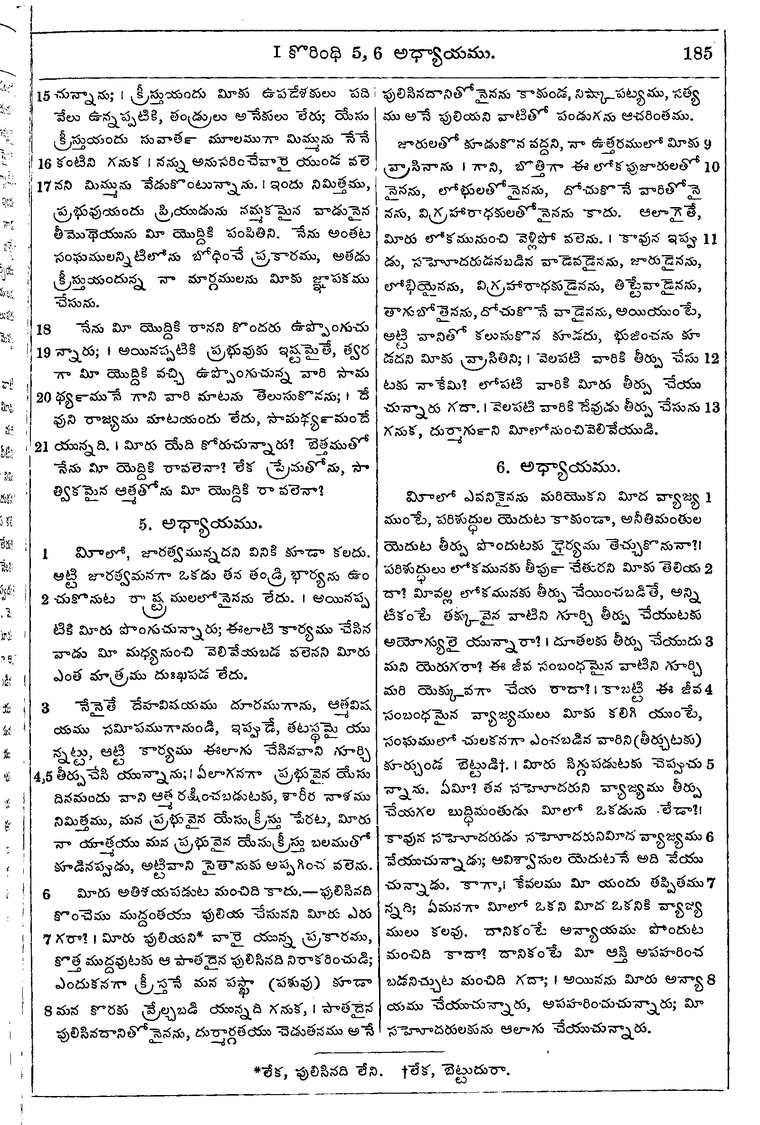 I కొరింథి 5, 6 అధ్యాయము. 185
15 చున్నాను; । క్రీస్తుయందు మీకు ఉపదేశకులు పది
వేలు ఉన్నప్పటికి, తండ్రులు అనేకులు లేరు; యేసు
క్రీస్తుయందు సువార్త మూలముగా మిమ్మును నేనే
16 కంటిని గనుక । నన్ను అనుసరించేవారై యుండ వలె
17 నని మిమ్మును వేడుకొంటున్నాను. । ఇందు నిమిత్తము,
ప్రభువుయందు ప్రియుడును నమ్మకమైన వాడునైన
తీమొథెయును మీ యొద్దికి పంపితిని. నేను అంతట
సంఘములన్నిటిలోను బోధించే ప్రకారము, అతడు
క్రీస్తుయందున్న నా మార్గములను మీకు జ్ఞాపకము
చేసును.
18 నేను మీ యొద్దికి రానని కొందరు ఉప్పొంగుచు
19 న్నారు; । అయినప్పటికి ప్రభువుకు ఇష్టమైతే, త్వర
గా మీ యొద్దికి వచ్చి ఉప్పొంగుచున్న వారి సామ
20 థ్యƒమునే గాని వారి మాటను తెలుసుకొనను; । దే
వుని రాజ్యము మాటయందు లేదు, సామథ్యƒమందే
21 యున్నది. । మీరు యేది కోరుచున్నారు? బెత్తముతో
నేను మీ యొద్దికి రావలెనా? లేక ప్రేమతోను, సా
త్వికమైన ఆత్మతోను మీ యొద్దికి రా వలెనా?
5. అధ్యాయము.
1 మీలో, జారత్వమున్నదని వినికి కూడా కలదు.
అట్టి జారత్వమనగా ఒకడు తన తండ్రి భార్యను ఉం
2 చుకొనుట రాష్ట్రములలోనైనను లేదు. । అయినప్ప
టికి మీరు పొంగుచున్నారు; ఈలాటి కార్యము చేసిన
వాడు మీ మధ్యనుంచి వెలివేయబడ వలెనని మీరు
ఎంత మాత్రము దుఃఖపడ లేదు.
3 నేనైతే దేహవిషయము దూరముగాను, ఆత్మవిష
యము సమీపముగానుండి, ఇప్పుడే, తటస్థమై యు
న్నట్టు, అట్టి కార్యము ఈలాగు చేసినవాని గూర్చి
4,5 తీర్పుచేసి యున్నాను; । ఏలాగనగా ప్రభువైన యేసు
దినమందు వాని ఆత్మ రక్షించబడుటకు, శారీర నాశము
నిమిత్తము, మన ప్రభువైన యేసుక్రీస్తు పేరట, మీరు
నా యాత్మయు మన ప్రభువైన యేసుక్రీస్తు బలముతో
కూడినప్పుడు, అట్టివాని సైతానుకు అప్పగించ వలెను.
6 మీరు అతిశయపడుట మంచిది కాదు.—పులిసినది
కొంచెము ముద్దంతయు పులియ చేసునని మీరు ఎరు
7 గరా? । మీరు పులియని* వారై యున్న ప్రకారము,
కొత్త ముద్దవుటకు ఆ పాతదైన పులిసినది నిరాకరించుడి;
ఎందుకనగా క్రీస్తనే మన పస్ఖా (పశువు) కూడా
8 మన కొరకు వ్రేల్చబడి యున్నది గనుక, । పాతదైన
పులిసినదానితోనైనను, దుర్మార్గతయు చెడుతనము అనే
పులిసినదానితోనైనను కాకుండ, నిష్కాపట్యము, సత్య
ము అనే పులియని వాటితో పండుగను ఆచరింతము.
జారులతో కూడుకొన వద్దని, నా ఉత్తరములో మీకు 9
వ్రాసినాను । గాని, బొత్తిగా ఈ లోకపుజారులతో 10
నైనను, లోభులతోనైనను, దోచుకొనే వారితోనై
నను, విగ్రహారాధకులతోనైనను కాదు. ఆలాగైతే,
మీరు లోకమునుంచి వెళ్లిపో వలెను. । కావున ఇప్పు 11
డు, సహోదరుడనబడిన వాడెవడైనను, జారుడైనను,
లోభియైనను, విగ్రహారాధకుడైనను, తిట్టేవాడైనను,
తాగుబోతైనను, దోచుకొనే వాడైనను, అయియుంటే,
అట్టి వానితో కలుసుకొన కూడదు, భుజించను కూ
డదని మీకు వ్రాసితిని; । వెలపటి వారికి తీర్పు చేసు 12
టకు నాకేమి? లోపటి వారికి మీరు తీర్పు చేయు
చున్నారు గదా. । వెలపటి వారికి దేవుడు తీర్పు చేసును 13
గనుక, దుర్మాగుƒని మీలోనుంచివెలివేయుడి.
6. అధ్యాయము.
మీలో ఎవనికైనను మరియొకని మీద వ్యాజ్య 1
ముంటే, పరిశుద్ధుల యెదుట కాకుండా, అనీతిమంతుల
యెదుట తీర్పు పొందుటకు ధైర్యము తెచ్చుకొనునా?।
పరిశుద్ధులు లోకమునకు తీపుƒ చేతురని మీకు తెలియ 2
దా? మీవల్ల లోకమునకు తీర్పు చేయించబడితే, అన్ని
టికంటే తక్కువైన వాటిని గూర్చి తీర్పు చేయుటకు
అయోగ్యులై యున్నారా?। దూతలకు తీర్పు చేయుదు 3
మని యెరుగరా? ఈ జీవ సంబంధమైన వాటిని గూర్చి
మరి యెక్కువగా చేయ రాదా?। కాబట్టి ఈ జీవ 4
సంబంధమైన వ్యాజ్యములు మీకు కలిగి యుంటే,
సంఘములో చులకనగా ఎంచబడిన వారిని(తీర్చుటకు)
కూర్చుండ బెట్టుడి†. । మీరు సిగ్గుపడుటకు చెప్పుచు 5
న్నాను. ఏమి? తన సహోదరుని వ్యాజ్యము తీర్పు
చేయగల బుద్ధిమంతుడు మీలో ఒకడును లేడా?।
కావున సహోదరుడు సహోదరునిమీద వ్యాజ్యము 6
వేయుచున్నాడు; అవిశ్వాసుల యెదుటనే అది వేయు
చున్నాడు. కాగా,। కేవలము మీ యందు తప్పితము 7
న్నది; ఏమనగా మీలో ఒకని మీద ఒకనికి వ్యాజ్య
ములు కలవు. దానికంటే అన్యాయము పొందుట
మంచిది కాదా? దానికంటే మీ ఆస్తి అపహరించ
బడనిచ్చుట మంచిది గదా; । అయినను మీరు అన్యా 8
యము చేయుచున్నారు, అపహరించుచున్నారు; మీ
సహోదరులకును ఆలాగు చేయుచున్నారు.
*లేక, పులిసినది లేని. †లేక, బెట్టుదురా.